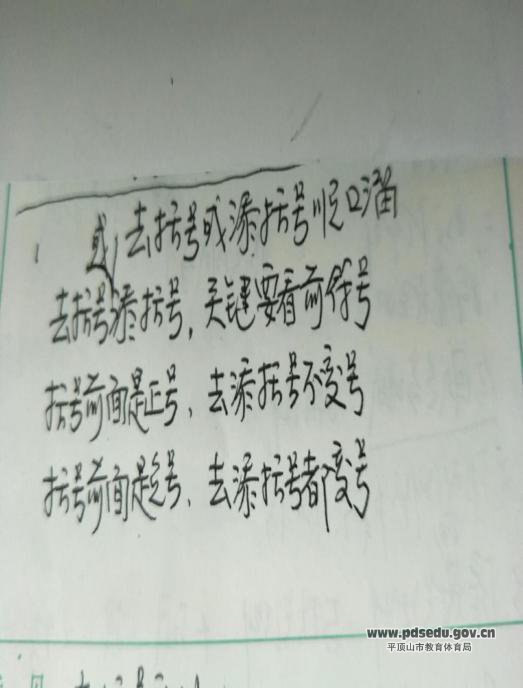 或去括号或添括号顺口溜
去括号添括号,关键要看前符号
括号前面是正号、去添括号不变号
括号前面是负号、去添括号都变号
www.pdsedu.gov.cn
平顶山市教育体育局